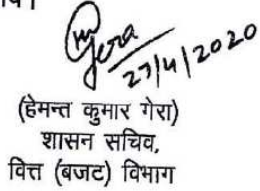 Gera
27/4/2020
(हेमन्त कुमार गेरा)
शासन सचिव,
वित्त (बजट) विभाग